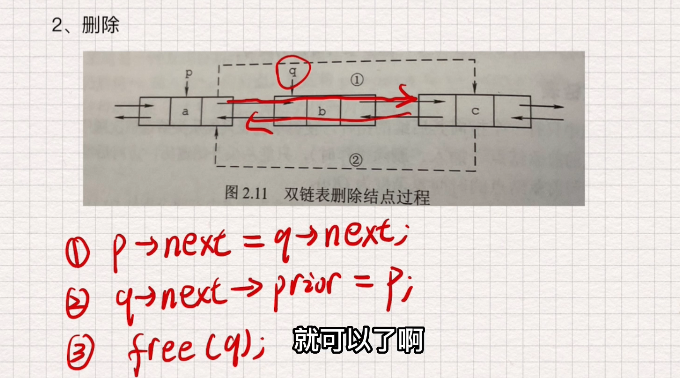 2、删除
p
q
①
a
b
c
②
图 2.11 双链表删除结点过程
① p→next = q→next;
② q→next→prior = p;
③ free(q);
就可以了啊